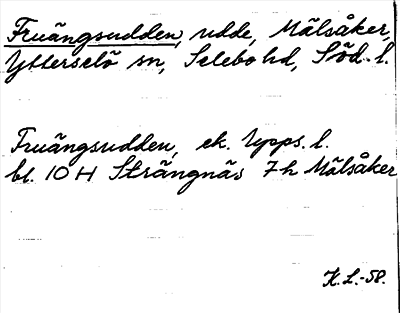 Fruängsudden, udde, Mälsåker,
Ytterselö sn, Selebo hd, Söd. l.
Fruängsudden, ek. Upps. l.
bl. 10 H Strängnäs 7 h Mälsåker
K. L.-58.